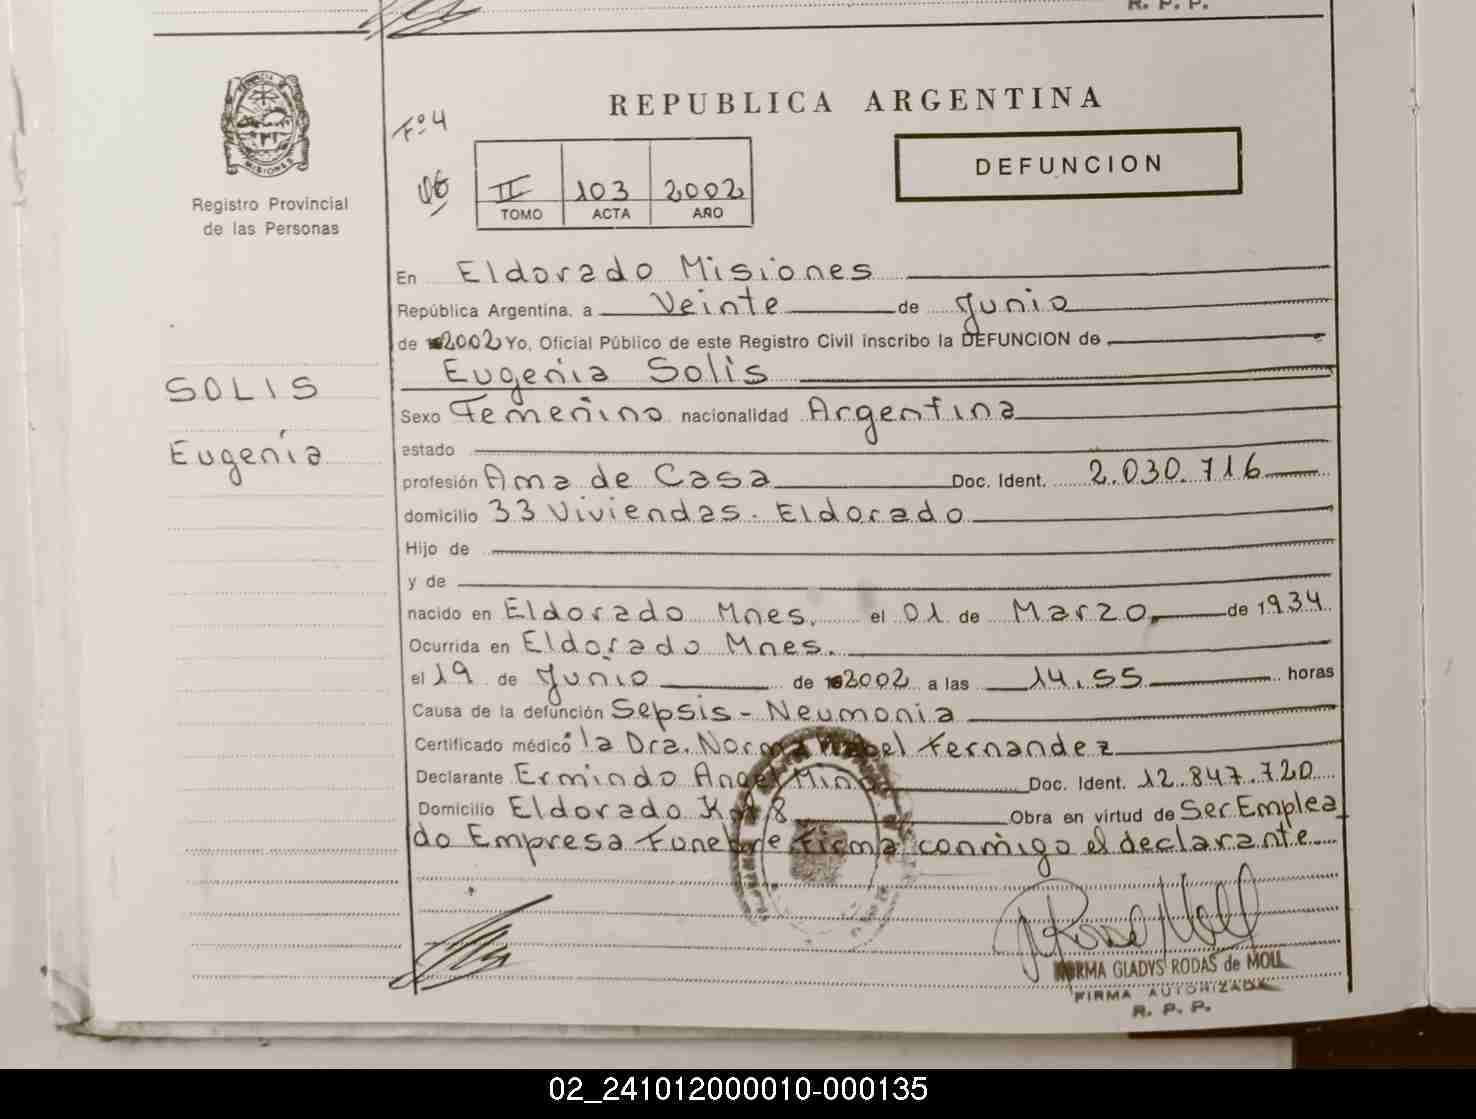 R. P. P.
REPUBLICA ARGENTINA
Fº 4
DEFUNCION
II 103 2002
TOMO ACTA AÑO
Registro Provincial
de las Personas
En Eldorado Misiones
República Argentina, a Veinte de Junio
de 2002 Yo, Oficial Público de este Registro Civil inscribo la DEFUNCION de
Eugenia Solis
SOLIS
Eugenia
Sexo Femenino nacionalidad Argentina
estado
profesión Ama de Casa Doc. Ident. 2.030.716
domicilio 33 Viviendas. Eldorado
Hijo de
y de
nacido en Eldorado Mnes. el 01 de Marzo de 1934
Ocurrida en Eldorado Mnes.
el 19 de Junio de 2002 a las 14,55 horas
Causa de la defunción Sepsis - Neumonia
Certificado médico la Dra. Norma Fernandez
Declarante Ermindo Angel Doc. Ident. 12.847.720
Domicilio Eldorado 8 Obra en virtud de Ser Emplea
do Empresa Funebre firma conmigo el declarante
NORMA GLADYS RODAS de MOLL
FIRMA AUTORIZADA
R. P. P.
02_241012000010-000135